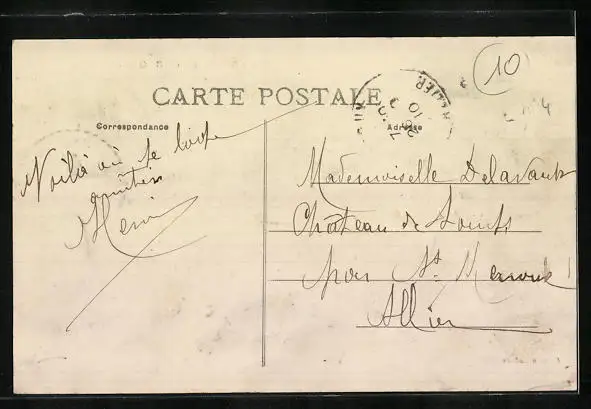 10
CARTE POSTALE
Correspondance
Adresse
ALLIER
Voilà où je loge
Henri
Mademoiselle Delavault
Château de
par St. Menoux
Allier